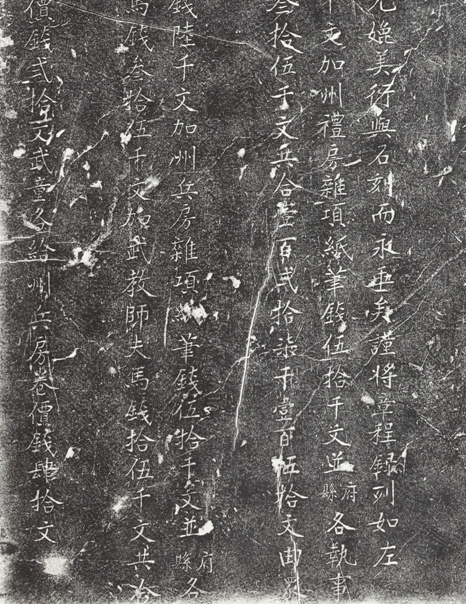 允媲美往與石刻而永垂矣謹將章程錄列如左
千文加州禮房雜項紙筆錢伍拾千文並府縣各執事
叁拾伍千文共合壹百貳拾柒千壹百伍拾文由眾
錢陸千文加州兵房雜項紙筆錢伍拾千文並府縣各
馬錢叁拾伍千文加武教師夫馬錢拾伍千文共拾
價錢貳拾文武童各給州兵房卷價錢肆拾文